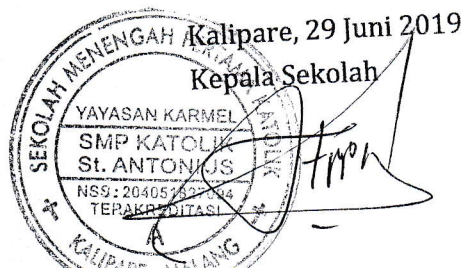 Kalipare, 29 Juni 2019
Kepala Sekolah
SEKOLAH MENENGAH PERTAMA KATOLIK
YAYASAN KARMEL
SMP KATOLIK
St. ANTONIUS
NSS : 204051827
TERAKREDITASI
A
KALIPARE MALANG